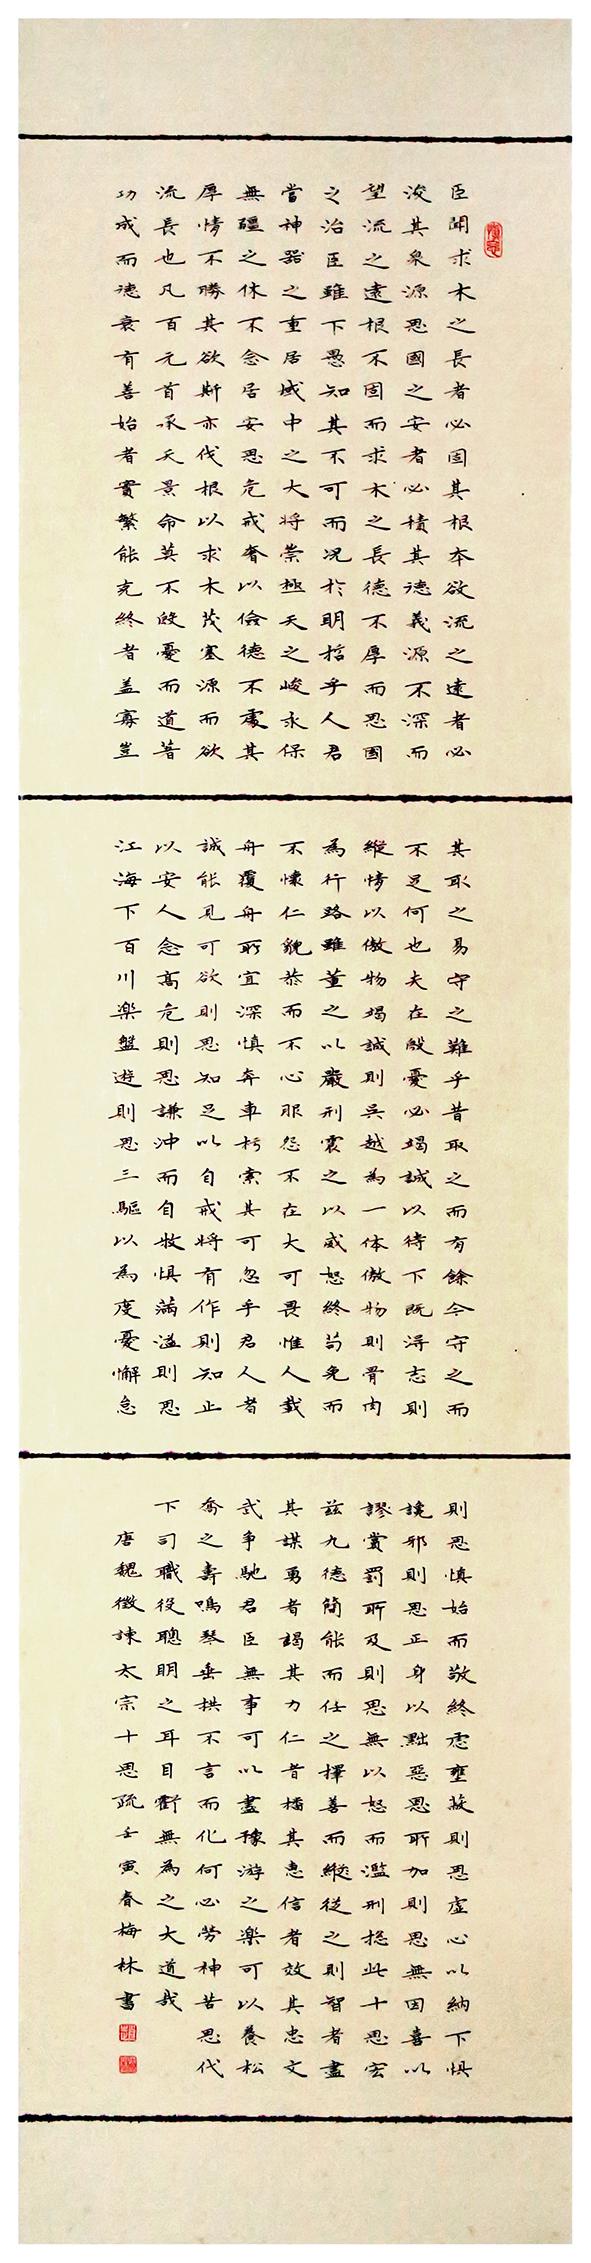 臣聞求木之長者必固其根本欲流之遠者必
浚其泉源思國之安者必積其德義源不深而
望流之遠根不固而求木之長德不厚而思國
之治臣雖下愚知其不可而況於明哲乎人君
當神器之重居域中之大將崇極天之峻永保
無疆之休不念居安思危戒奢以儉德不處其
厚情不勝其欲斯亦伐根以求木茂塞源而欲
流長也凡百元首承天景命莫不殷憂而道著
功成而德衰有善始者實繁能克終者蓋寡豈
其取之易守之難乎昔取之而有餘今守之而
不足何也夫在殷憂必竭誠以待下既得志則
縱情以傲物竭誠則吳越為一体傲物則骨肉
為行路雖董之以嚴刑震之以威怒終苟免而
不懷仁貌恭而不心服怨不在大可畏惟人載
舟覆舟所宜深慎奔車朽索其可忽乎君人者
誠能見可欲則思知足以自戒將有作則知止
以安人念高危則思謙沖而自牧惧滿溢則思
江海下百川樂盤遊則思三驅以為度憂懈怠
則思慎始而敬終慮壅蔽則思虛心以納下惧
讒邪則思正身以黜惡恩所加則思無因喜以
謬賞罰所及則思無以怒而濫刑總此十思宏
茲九德簡能而任之擇善而縱從之則智者盡
其謀勇者竭其力仁者播其惠信者效其忠文
武争馳君臣無事可以盡豫游之樂可以養松
喬之壽鳴琴垂拱不言而化何必劳神苦思代
下司職役聰明之耳目虧無為之大道哉
唐魏徵諫太宗十思疏壬寅春梅林書